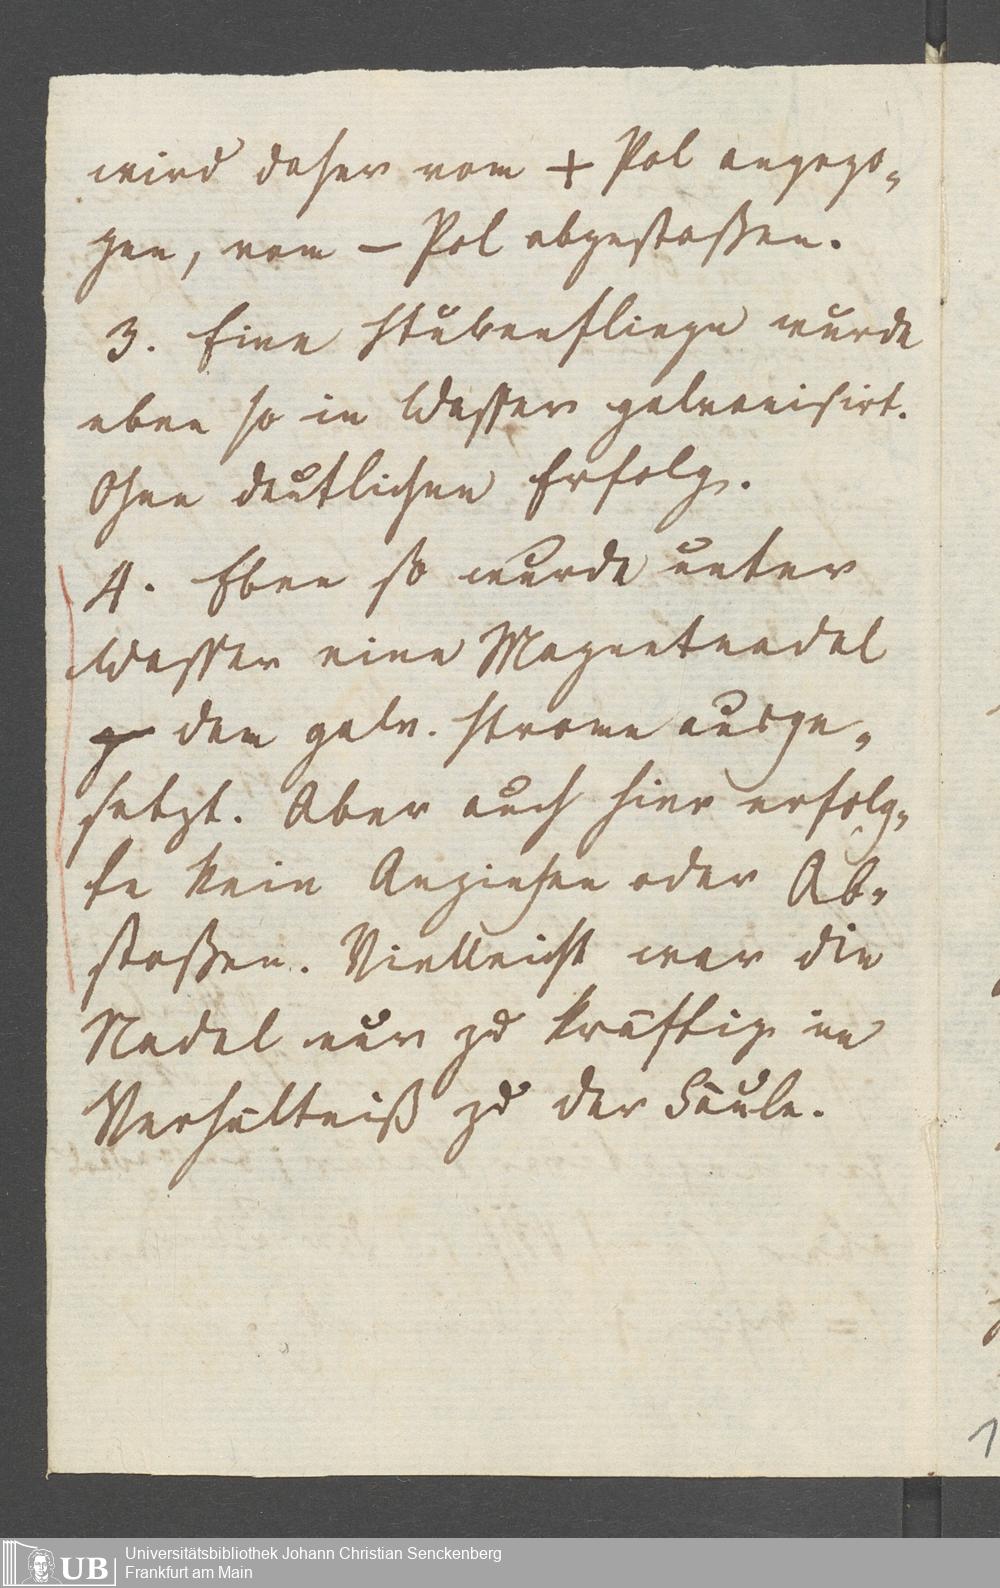 wird daher vom + Pol angezo-
gen, vom – Pol abgestoßen.
3. Eine Stubenfliege wurde
eben so in Wasser galvanisirt.
Ohne deutlichen Erfolg.
4. Eben so wurde unter
Wasser eine Magnetnadel
dem galv. Strome ausge-
setzt. Aber auch hier erfolg-
te kein Anziehen oder Ab-
stoßen. Vielleicht war die
Nadel nur zu kräftig im
Verhältniß zu der Säule.
1
UB
Universitätsbibliothek Johann Christian Senckenberg
Frankfurt am Main